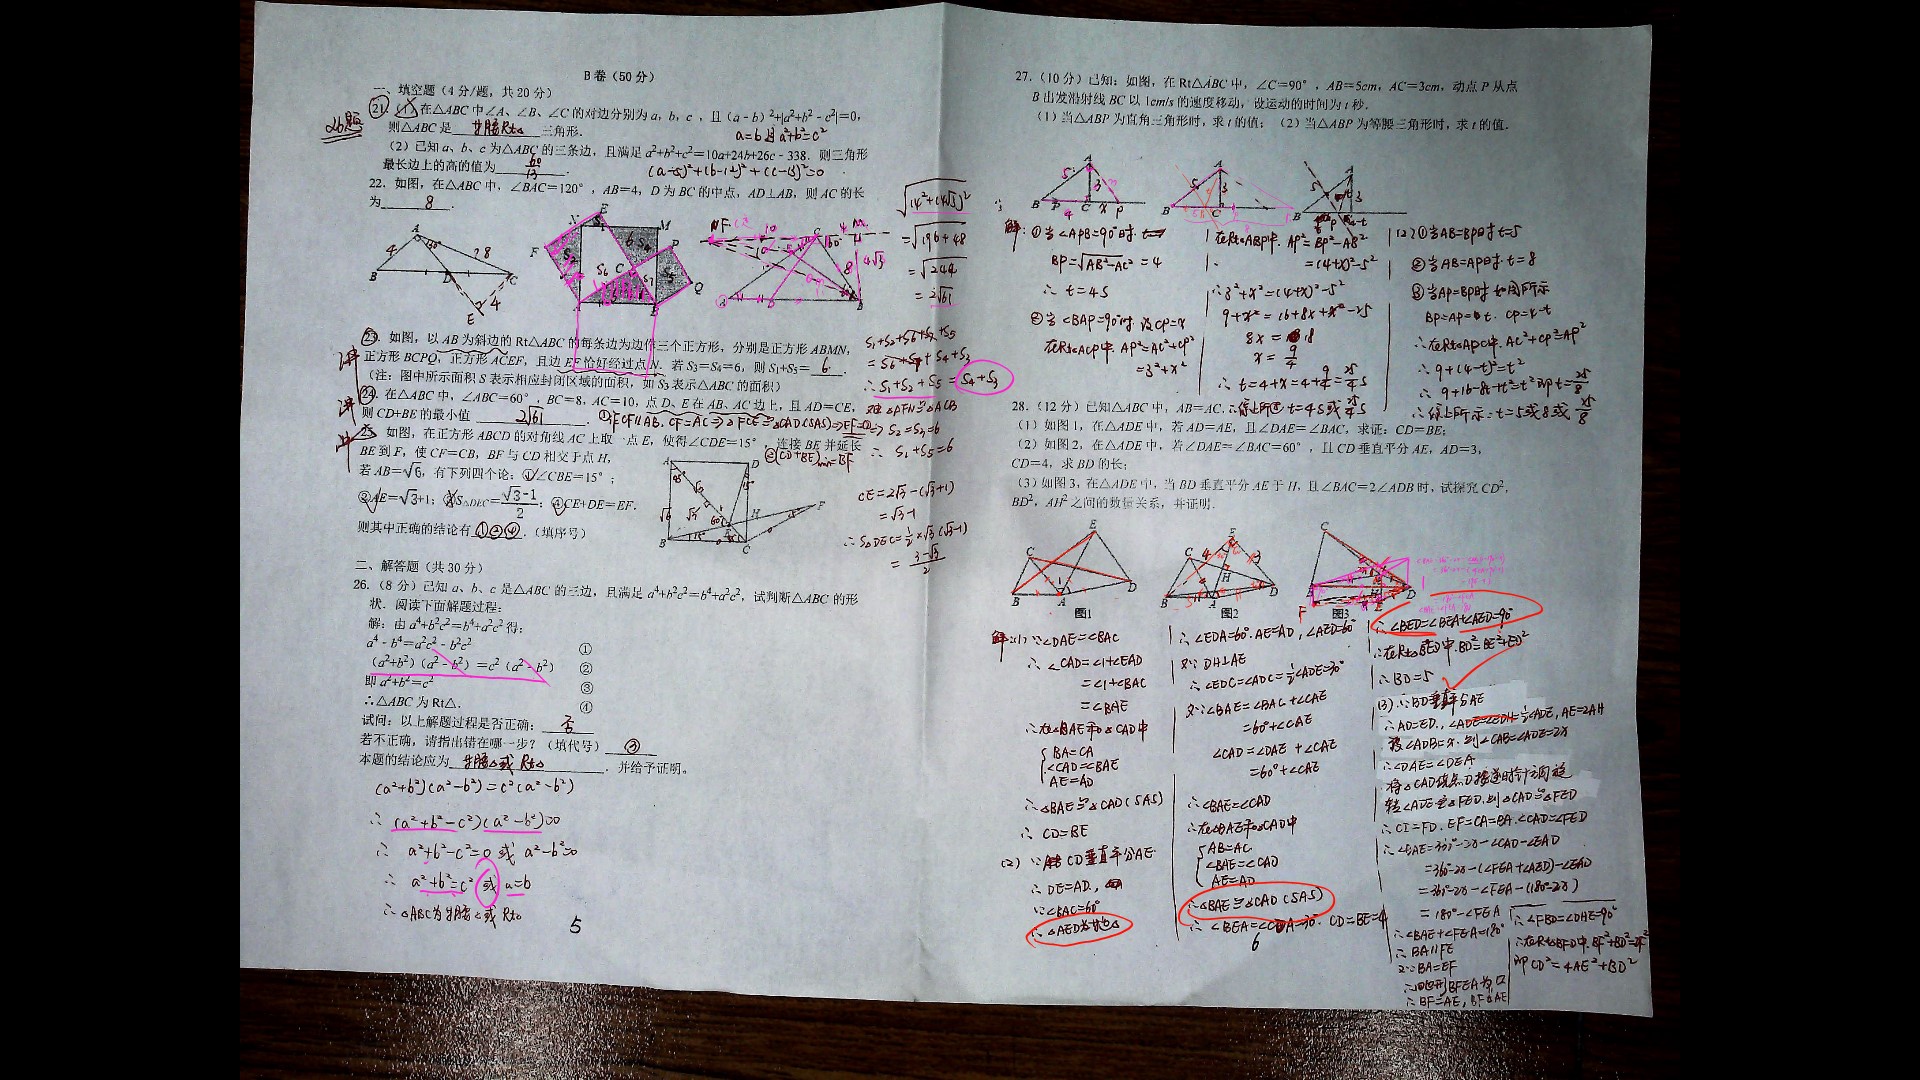 B卷(50分)
一、填空题(4分/题,共20分)
21.(1)在△ABC中∠A、∠B、∠C的对边分别为a,b,c,且(a-b)²+|a²+b²-c²|=0,
则△ABC是 等腰Rt△ 三角形.
a=b且a²+b²=c²
(2)已知a、b、c为△ABC的三条边,且满足a²+b²+c²=10a+24b+26c-338.则三角形
最长边上的高的值为 60/13 .
(a-5)²+(b-12)²+(c-13)²=0
22.如图,在△ABC中,∠BAC=120°,AB=4,D为BC的中点,AD⊥AB,则AC的长
为 8 .
=√196+48
=√244
=2√61
23.如图,以AB为斜边的Rt△ABC的每条边为边作三个正方形,分别是正方形ABMN,
正方形BCPQ,正方形ACEF,且边EF恰好经过点N.若S₃=S₄=6,则S₁+S₅= 6 .
(注:图中所示面积S表示相应封闭区域的面积,如S₃表示△ABC的面积)
∴S₁+S₂+S₅=S₄+S₃
24.在△ABC中,∠ABC=60°,BC=8,AC=10,点D、E在AB、AC边上,且AD=CE,
则CD+BE的最小值 2√61
⇒S₂=S₃=6
∴S₁+S₅=6
②(CD+BE)min=BF
25.如图,在正方形ABCD的对角线AC上取一点E,使得∠CDE=15°,连接BE并延长
BE到F,使CF=CB,BF与CD相交于点H,
若AB=√6,有下列四个论:①∠CBE=15°;
②AE=√3+1;③S△DEC=(√3-1)/2;④CE+DE=EF.
则其中正确的结论有 ①②④ .(填序号)
CE=2√3-(√3+1)
=√3-1
∴S△DEC=1/2×√3(√3-1)
=(3-√3)/2
二、解答题(共30分)
26.(8分)已知a、b、c是△ABC的三边,且满足a⁴+b²c²=b⁴+a²c²,试判断△ABC的形
状.阅读下面解题过程:
解:由a⁴+b²c²=b⁴+a²c²得:
a⁴-b⁴=a²c²-b²c² ①
(a²+b²)(a²-b²)=c²(a²-b²) ②
即a²+b²=c² ③
∴△ABC为Rt△. ④
试问:以上解题过程是否正确: 否
若不正确,请指出错在哪一步?(填代号) ③
本题的结论应为 等腰△或Rt△ .并给予证明。
(a²+b²)(a²-b²)=c²(a²-b²)
∴(a²+b²-c²)(a²-b²)=0
∴a²+b²-c²=0或a²-b²=0
∴a²+b²=c²或a=b
∴△ABC为等腰△或Rt△
5
27.(10分)已知:如图,在Rt△ABC中,∠C=90°,AB=5cm,AC=3cm,动点P从点
B出发沿射线BC以1cm/s的速度移动,设运动的时间为t秒.
(1)当△ABP为直角三角形时,求t的值;(2)当△ABP为等腰三角形时,求t的值.
解:①当∠APB=90°时.
BP=√AB²-AC²=4
∴t=4s
②当∠BAP=90°时 设CP=x
在Rt△ACP中.AP²=AC²+CP²
=3²+x²
在Rt△ABP中.AP²=BP²-AB²
=(4+x)²-5²
∴3²+x²=(4+x)²-5²
9+x²=16+8x+x²-25
8x=18
x=9/4
∴t=4+x=4+9/4=25/4s
∴综上所述t=4s或25/4s
(2)①当AB=BP时t=5
②当AB=AP时.t=8
③当AP=BP时 如图所示
BP=AP=t.CP=4-t
∴在Rt△APC中.AC²+CP²=AP²
∴9+(4-t)²=t²
∴9+16-8t+t²=t²即t=25/8
∴综上所示:t=5或8或25/8
28.(12分)已知△ABC中,AB=AC.
(1)如图1,在△ADE中,若AD=AE,且∠DAE=∠BAC,求证:CD=BE;
(2)如图2,在△ADE中,若∠DAE=∠BAC=60°,且CD垂直平分AE,AD=3,
CD=4,求BD的长;
(3)如图3,在△ADE中,当BD垂直平分AE于H,且∠BAC=2∠ADB时,试探究CD²,
BD²,AH²之间的数量关系,并证明.
图1
图2
图3
解:(1)∵∠DAE=∠BAC
∴∠CAD=∠1+∠EAD
=∠1+∠BAC
=∠BAE
∴在△BAE和△CAD中
BA=CA
∠CAD=∠BAE
AE=AD
∴△BAE≌△CAD(SAS)
∴CD=BE
(2)∵CD垂直平分AE
∴DE=AD.
∵∠BAC=60°
∴△AED为等边△
∴∠EDA=60°.AE=AD,∠AED=60°
又∵DH⊥AE
∴∠EDC=∠ADC=1/2∠ADE=30°
又∵∠BAE=∠BAC+∠CAE
=60°+∠CAE
∠CAD=∠DAE+∠CAE
=60°+∠CAE
∴∠BAE=∠CAD
∴在△BAE和△CAD中
AB=AC
∠BAE=∠CAD
AE=AD
∴△BAE≌△CAD(SAS)
∴∠BEA=∠CDA=30°.CD=BE=4
6
∴∠BED=∠BEA+∠AED=90°
∴在Rt△BED中.BD²=BE²+ED²
∴BD=5
(3)∵BD垂直平分AE
∴AD=ED.,∠ADE=∠EDH=1/2∠ADE,AE=2AH
设∠ADB=x.则∠CAB=∠ADE=2x
∴∠DAE=∠DEA
将△CAD绕点D按逆时针方向旋
转∠ADE至△FED.则△CAD≌△FED
∴CD=FD.EF=CA=BA.∠CAD=∠FED
∴∠BAE=360°-2x-∠CAD-∠EAD
=360°-2x-(∠FEA+∠AED)-∠EAD
=360°-2x-∠FEA-(180°-2x)
=180°-∠FEA
∴∠BAE+∠FEA=180°
∴BA∥FE
又∵BA=EF
∴四边形BFEA为▱
∴BF=AE,BF∥AE
∴∠FBD=∠DHE=90°
∴在Rt△BFD中.BF²+BD²=DF²
即CD²=4AE²+BD²